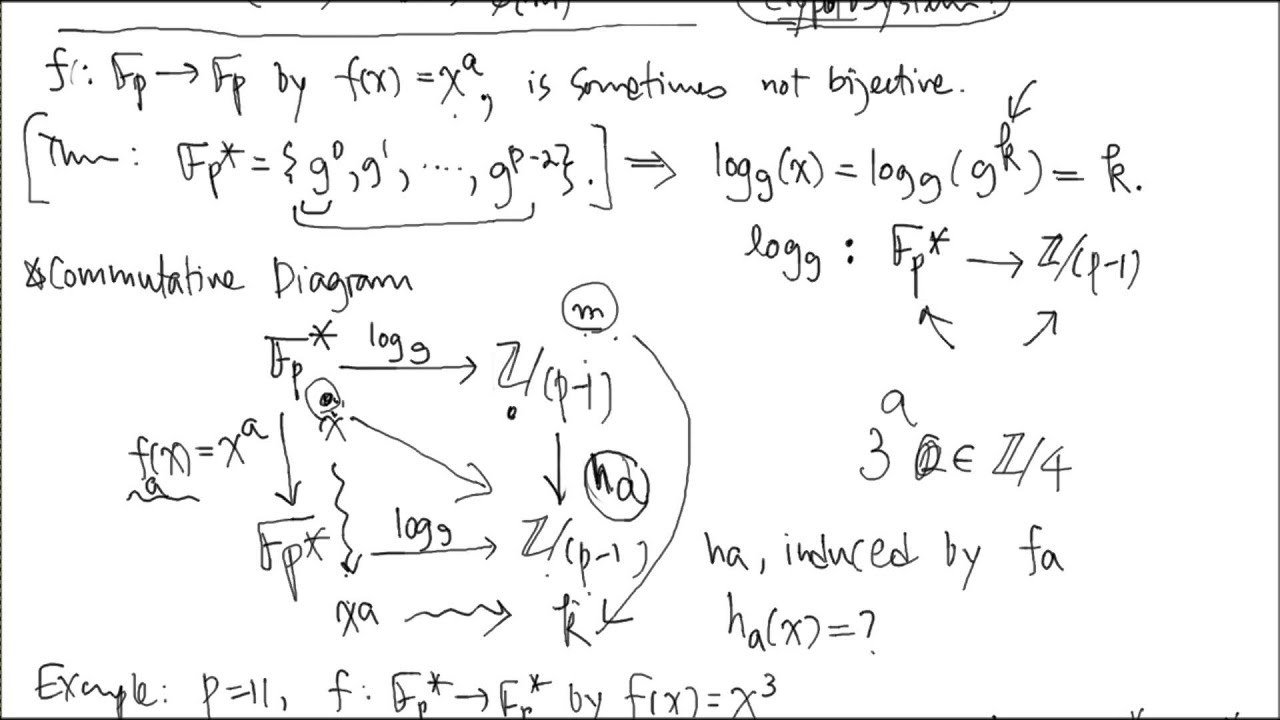 φ(m)
Cryptosystem.
f: 𝔽p → 𝔽p by f(x) = x^a, is sometimes not bijective.
[Thm: 𝔽p* = {g^0, g^1, ...., g^(p-2)}.] ⟹ log_g(x) = log_g(g^k) = k.
log_g : 𝔽p* → ℤ/(p-1)
*Commutative Diagram
m
𝔽p* log_g → ℤ/(p-1)
x
f_a(x) = x^a
h_a
3^a ∈ ℤ/4
𝔽p* log_g → ℤ/(p-1)
ha, induced by fa
xa ⇝ k
h_a(x) = ?
Example: p=11, f: 𝔽p* → 𝔽p* by f(x) = x^3